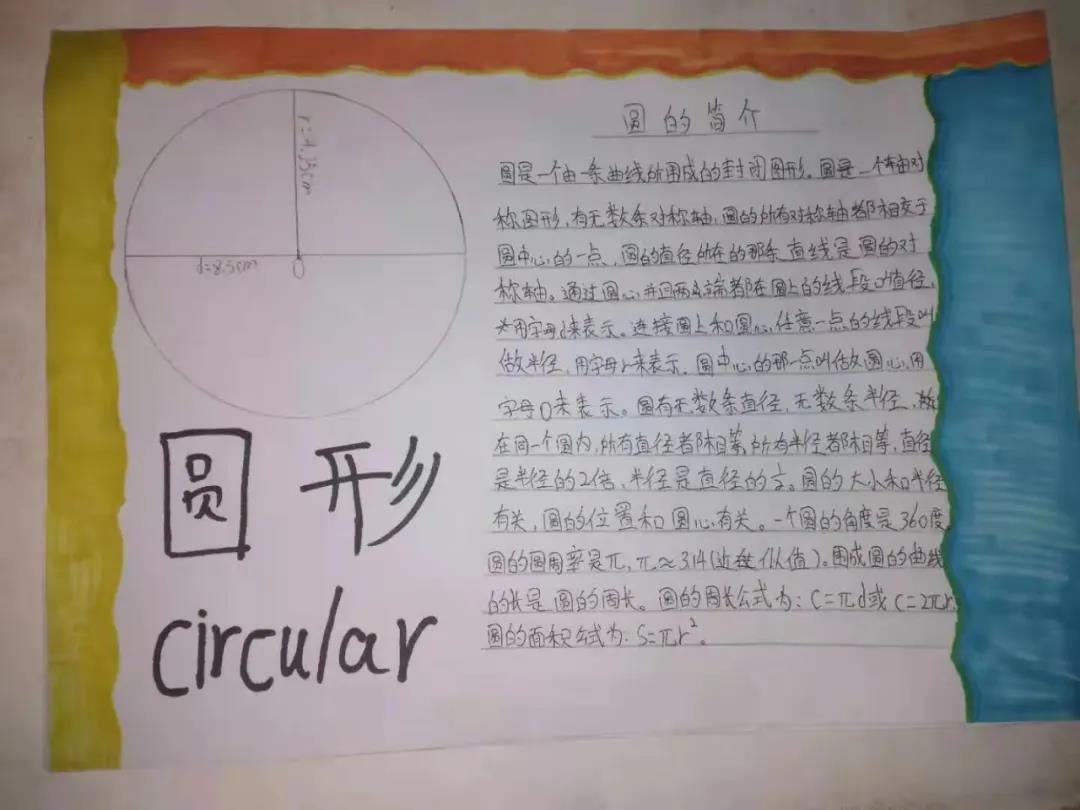 d=8.5cm
O
圆形
circular
圆的简介
圆是一个由一条曲线所围成的封闭图形。圆是一个轴对
称图形,有无数条对称轴,圆的所有对称轴都相交于
圆中心的一点,圆的直径所在的那条直线是圆的对
称轴。通过圆心并且两端都在圆上的线段叫直径,
用字母d来表示。连接圆上和圆心任意一点的线段叫
做半径,用字母r来表示。圆中心的那一点叫做圆心,用
字母O来表示。圆有无数条直径,无数条半径,
在同一个圆内,所有直径都相等,所有半径都相等,直径
是半径的2倍,半径是直径的½。圆的大小和半径
有关,圆的位置和圆心有关。一个圆的角度是360度
圆的圆周率是π,π≈3.14(近似值)。围成圆的曲线
的长是圆的周长。圆的周长公式为:C=πd或C=2πr,
圆的面积公式为:S=πr²。